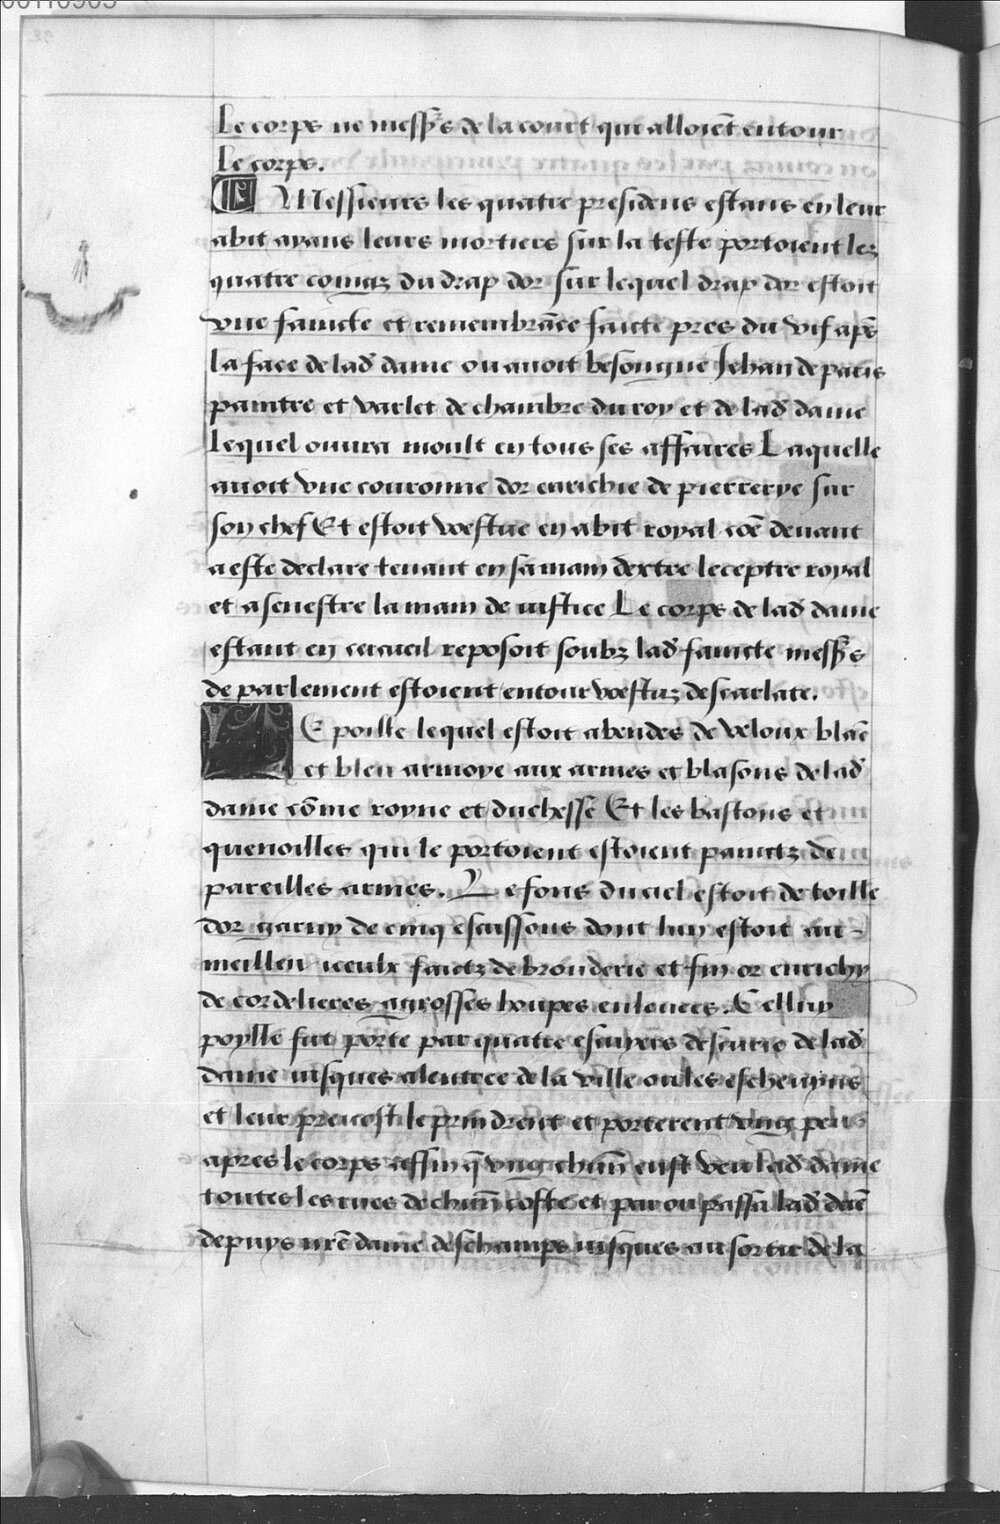 00110905
Le corps ne messrs de la court qui alloient entour
Le corps.
Messieurs les quatre presidens estans en leur
abit ayans leurs mortiers sur la teste portoient lez
quatre comgz du drap dor sur lequel drap dor estoit
vne faincte et remembrāce faicte pres du vif apēs
la face de lad dame ou auoit besongne Jehan de paris
paintre et varlet de chambre du roy et de lad dame
lequel ouura moult en tous ses affaires Laquelle
auoit vne couronne dor enrichie de pierrerye sur
son chef Et estoit vestue en abit royal cōe deuant
a este declare tenant en sa main dextre leceptre royal
et a senestre la main de iustice Le corps de lad dame
estant en cercueil reposoit soubz lad faincte messrs
de parlement estoient entour vestuz descarlate.
E poille lequel estoit a bendes de veloux blāc
et bleu armoye aux armes et blasons de lad
dame cōme royne et duchesse Et les bastons et
quenoilles qui le portoient estoient painctz de
pareilles armes. Le fons du ciel estoit de toille
dor garny de cinq escussons dont lun estoit au
meillieu iceulx faictz de brouderie et fin or enrichy
de cordelieres a grosses houpes enleuees. Celluy
poylle fut porte par quatre escuyers descuris de lad
dame iusques a lentree de la ville ou les escheuyns
et leur preuost le prindrent et porterent vng peu
apres le corps affin q̄ vng chūn eust veu lad dame
toutes les rues de chūn coste et par ou passa lad dāe
depuys nrē dame des champs iusques au sortir de la